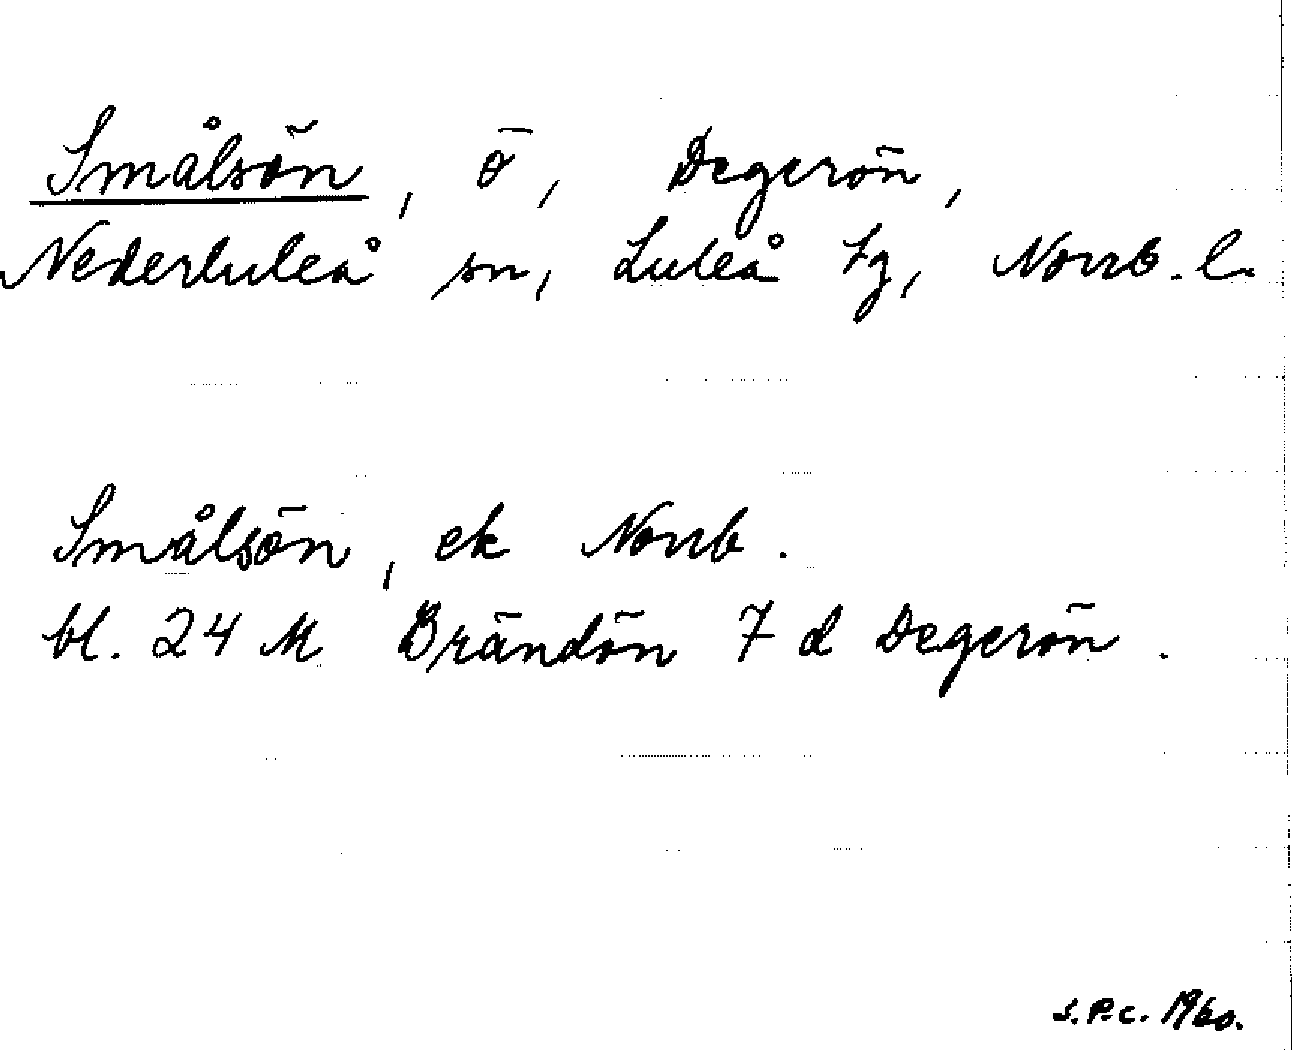 Smålsön, ö, Degerön,
Nederluleå sn, Luleå tg, Norrb. l.
Smålsön, ek Norrb.
bl. 24 M Brändön 7 d Degerön.
S.P.C. 1960.